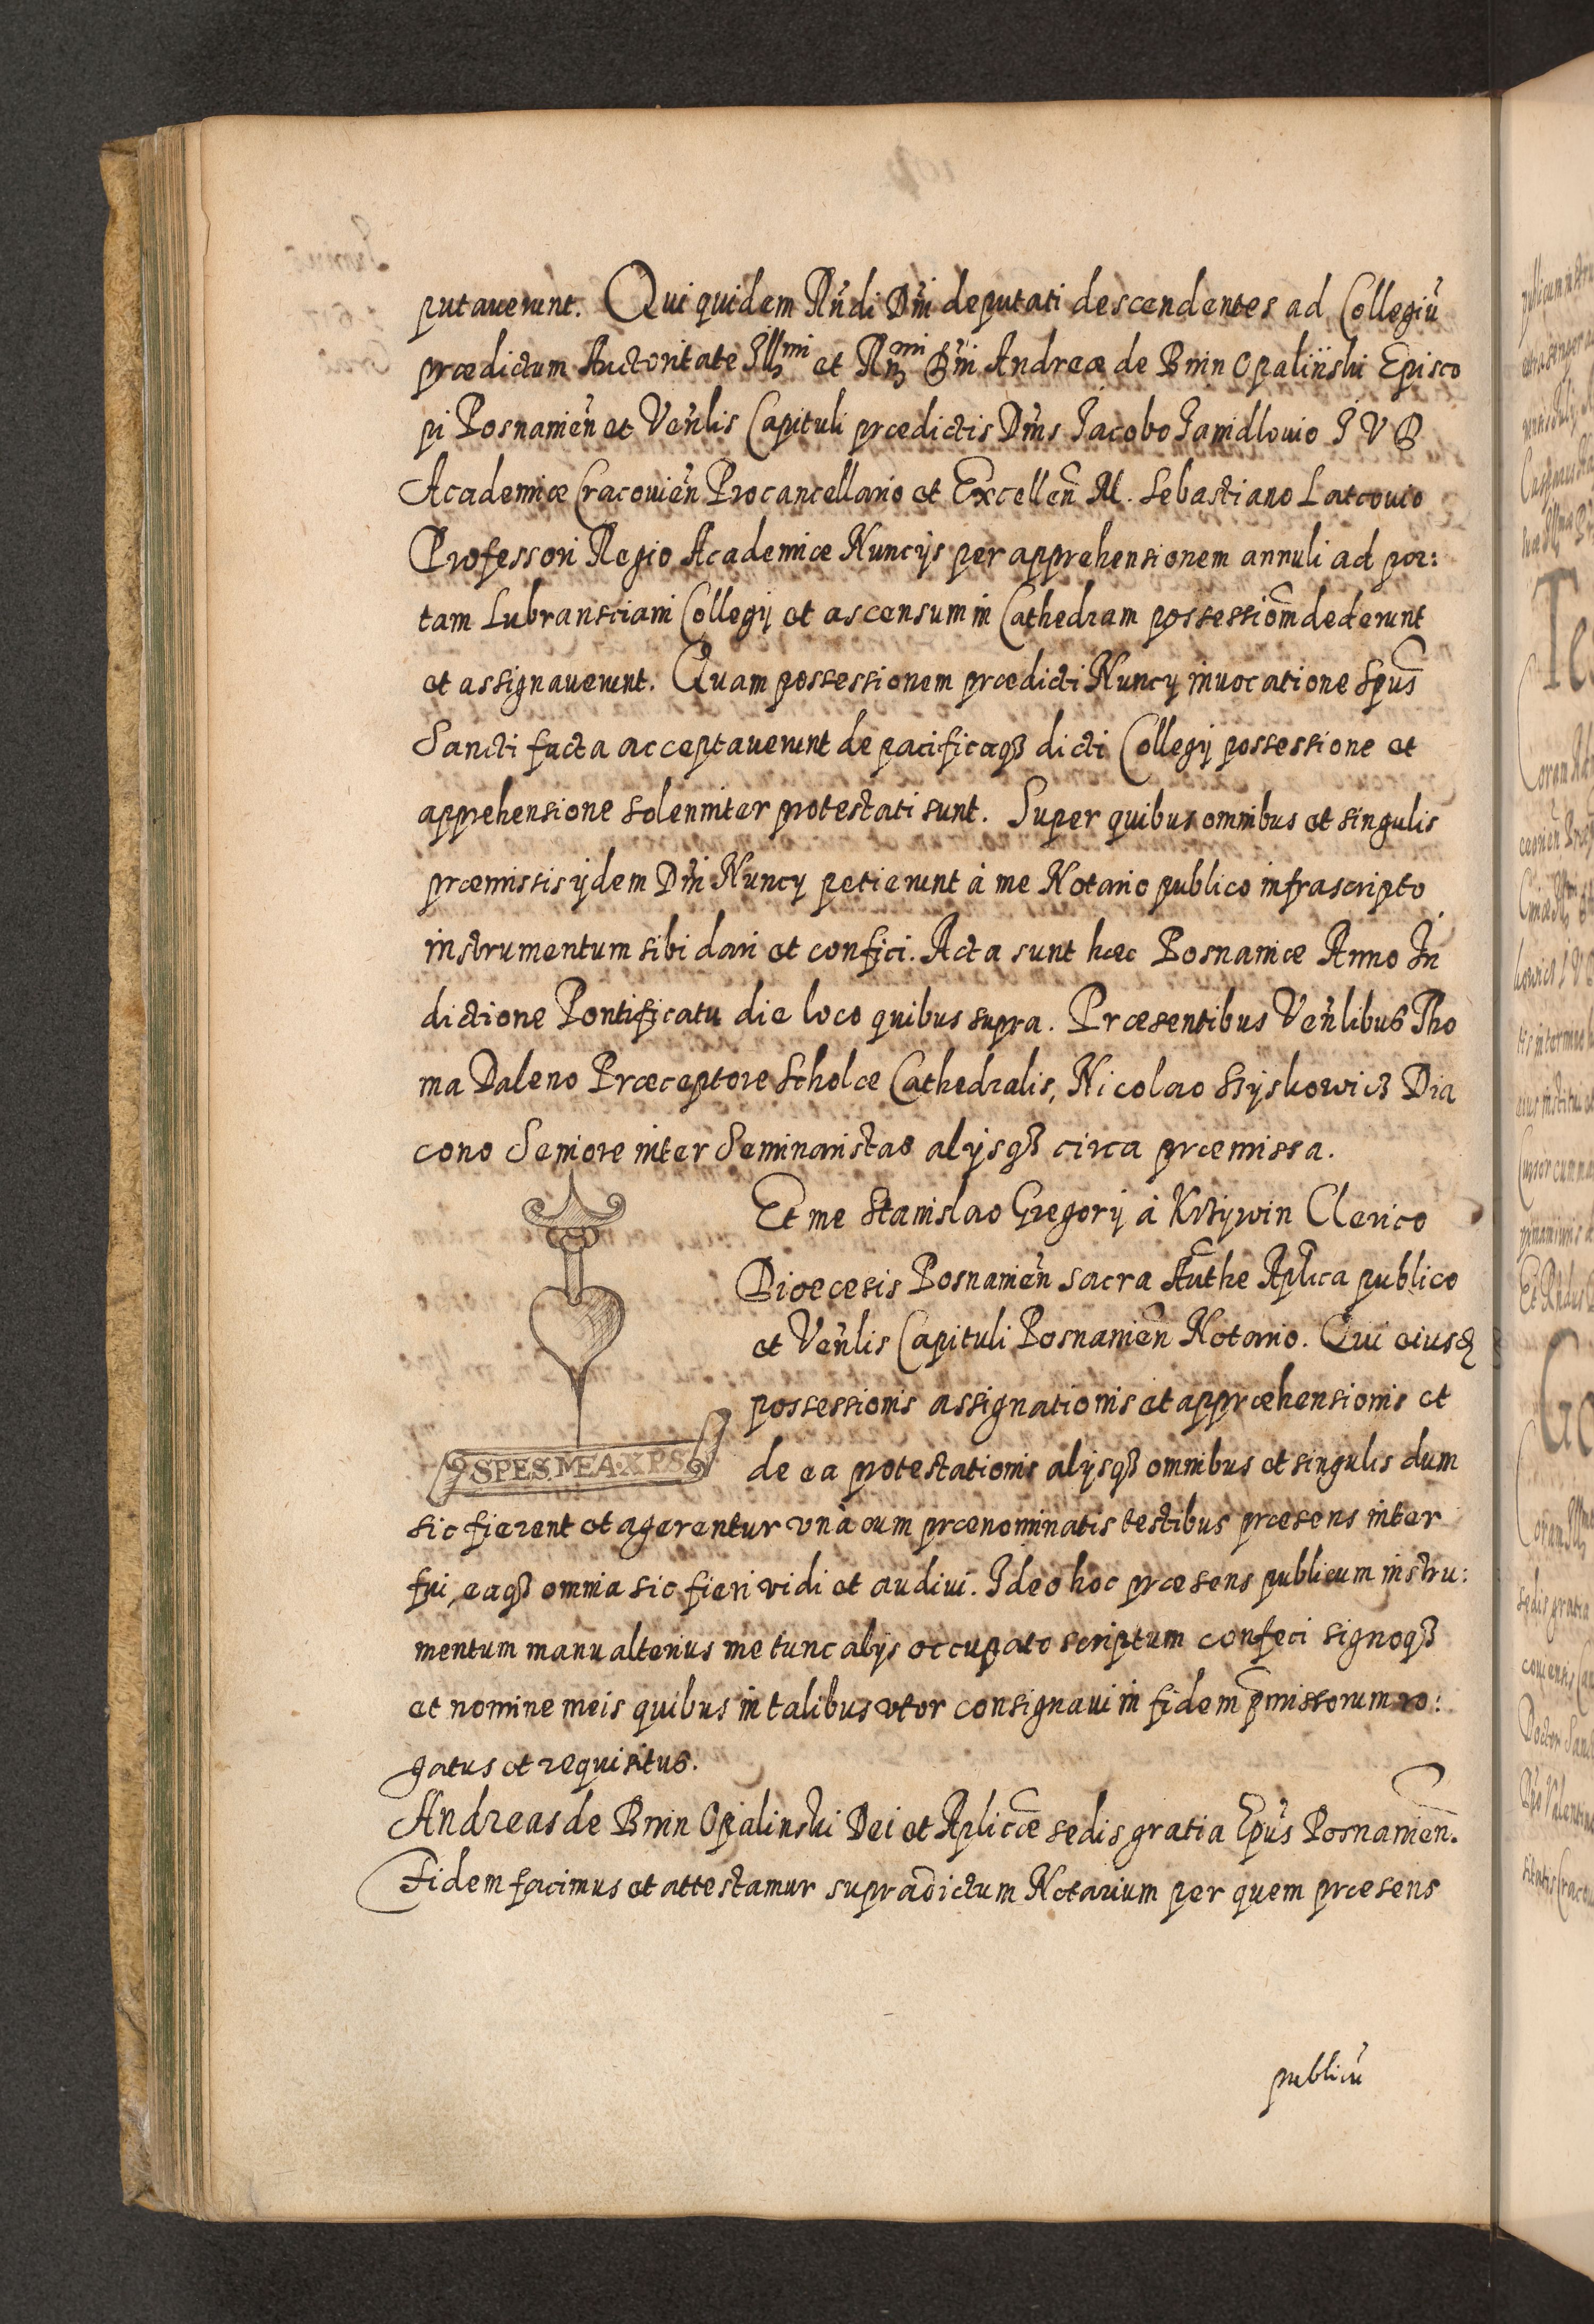 putauerunt. Qui quidem Rńdi Dńi deputati descendentes ad Collegiu̇
prædictum Auctoritate Illmi et Rmi Dńi Andreæ de Bnin Opaliński Episco
pi Posnanień et Veńlis Capituli prædictis Dńis Jacobo Janidlouio I V D
Academiæ Cracouień Procancellario et Excelleñ M. Sebastiano Latcouio
Professori Regio Academiæ Nuncijs per apprehensionem annuli ad por:
tam Lubransciani Collegij et ascensum in Cathedram possessiom̃ dederunt
et assignauerunt. Quam possessionem prædicti Nuncij inuocatione Spũs
Sancti facta acceptauerunt de pacificaqȝ dicti Collegij possessione et
apprehensione solenniter protestati sunt. Super quibus omnibus et singulis
præmissis ijdem Dńi Nuncij petierunt à me Notario publico infrascripto
instrumentum sibi dari et confici. Acta sunt hæc Posnaniæ Anno In
dictione Pontificatu die loco quibus supra. Præsentibus Veńlibus Tho
ma Daleno Præceptore Scholæ Cathedralis, Nicolao Szyskowicz Dia
cono Seniore inter Seminaristas alijsqȝ circa præmissa.
Et me Stanislao Gregorij à Krzywin Clerico
Dioecesis Posnanień sacra Auth̃e Aplica publico
et Veńlis Capituli Posnanień Notario. Qui eiusd
possessionis assignationis et appræhensionis et
SPES MEA XPS
de ea protestationis alijsqȝ omnibus et singulis dum
sic fierent et agerentur vnà cum prænominatis testibus præsens inter
fui, eaqȝ omnia sic fieri vidi et audiui. Ideo hoc præsens publicum instru:
mentum manu alterius me tunc alijs occupato scriptum confeci signoqȝ
et nomine meis quibus in talibus vtor consignaui in fidem p̃missorum ro:
gatus et requisitus.
Andreas de Bnin Opaliński Dei et Aplicæ sedis gratia Epũs Posnanień.
Fidem facimus et attestamur supradictum Notarium per quem præsens
publicu̇